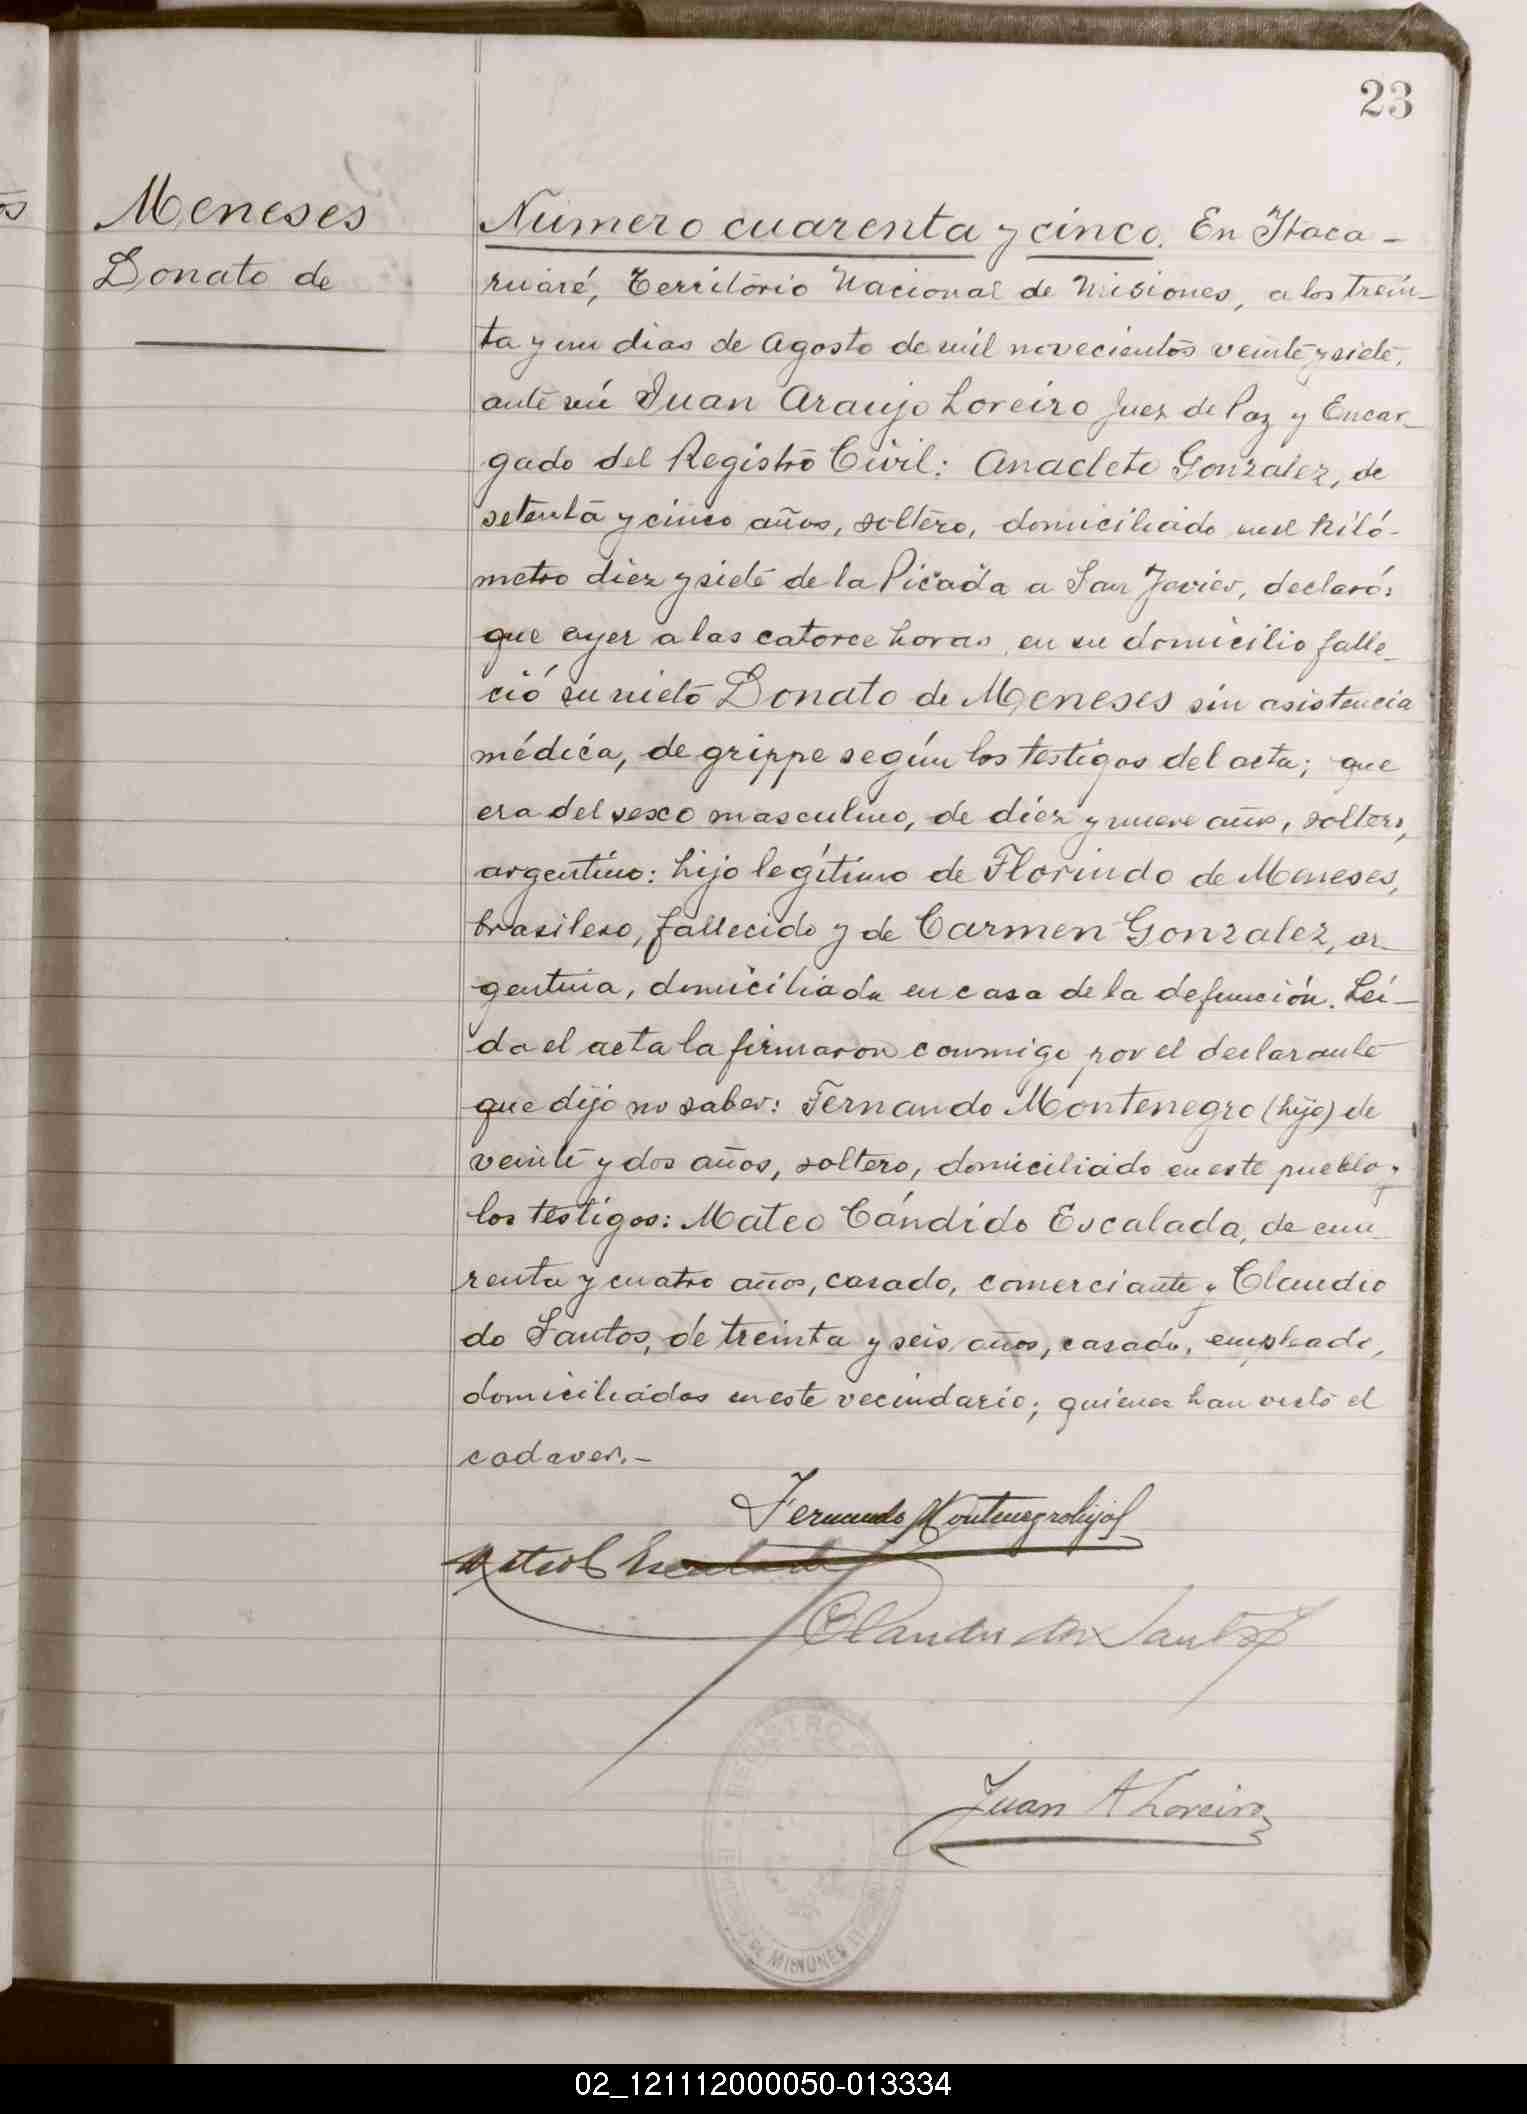 23
Meneses
Donato de
Número cuarenta y cinco. En Itaca-
ruaré, Territorio Nacional de Misiones, a los trein-
ta y un dias de Agosto de mil novecientos veinte y siete,
ante mi Juan Araujo Loreiro Juez de Paz y Encar-
gado del Registro Civil: Anacleto Gonzalez, de
setenta y cinco años, soltero, domiciliado en el kiló-
metro diez y siete de la Picada a San Javier, declaró:
que ayer a las catorce horas, en su domicilio falle-
ció su nieto Donato de Meneses sin asistencia
médica, de grippe según los testigos del acta; que
era del sexo masculino, de diez y nueve años, soltero,
argentino: hijo legítimo de Florindo de Meneses,
brasilero, fallecido y de Carmen Gonzalez, ar-
gentina, domiciliada en casa de la defunción. Leí-
da el acta la firmaron conmigo por el declarante
que dijo no saber: Fernando Montenegro (hijo) de
veinte y dos años, soltero, domiciliado en este pueblo y
los testigos: Mateo Cándido Escalada, de cua-
renta y cuatro años, casado, comerciante y Claudio
do Santos, de treinta y seis años, casado, empleado,
domiciliados en este vecindario; quienes han visto el
cadaver.-
Fernando Montenegro hijo
Mateo C Escalada
Claudio dos Santos
Juan A Loreiro
REGISTRO
DE MISIONES
02_121112000050-013334